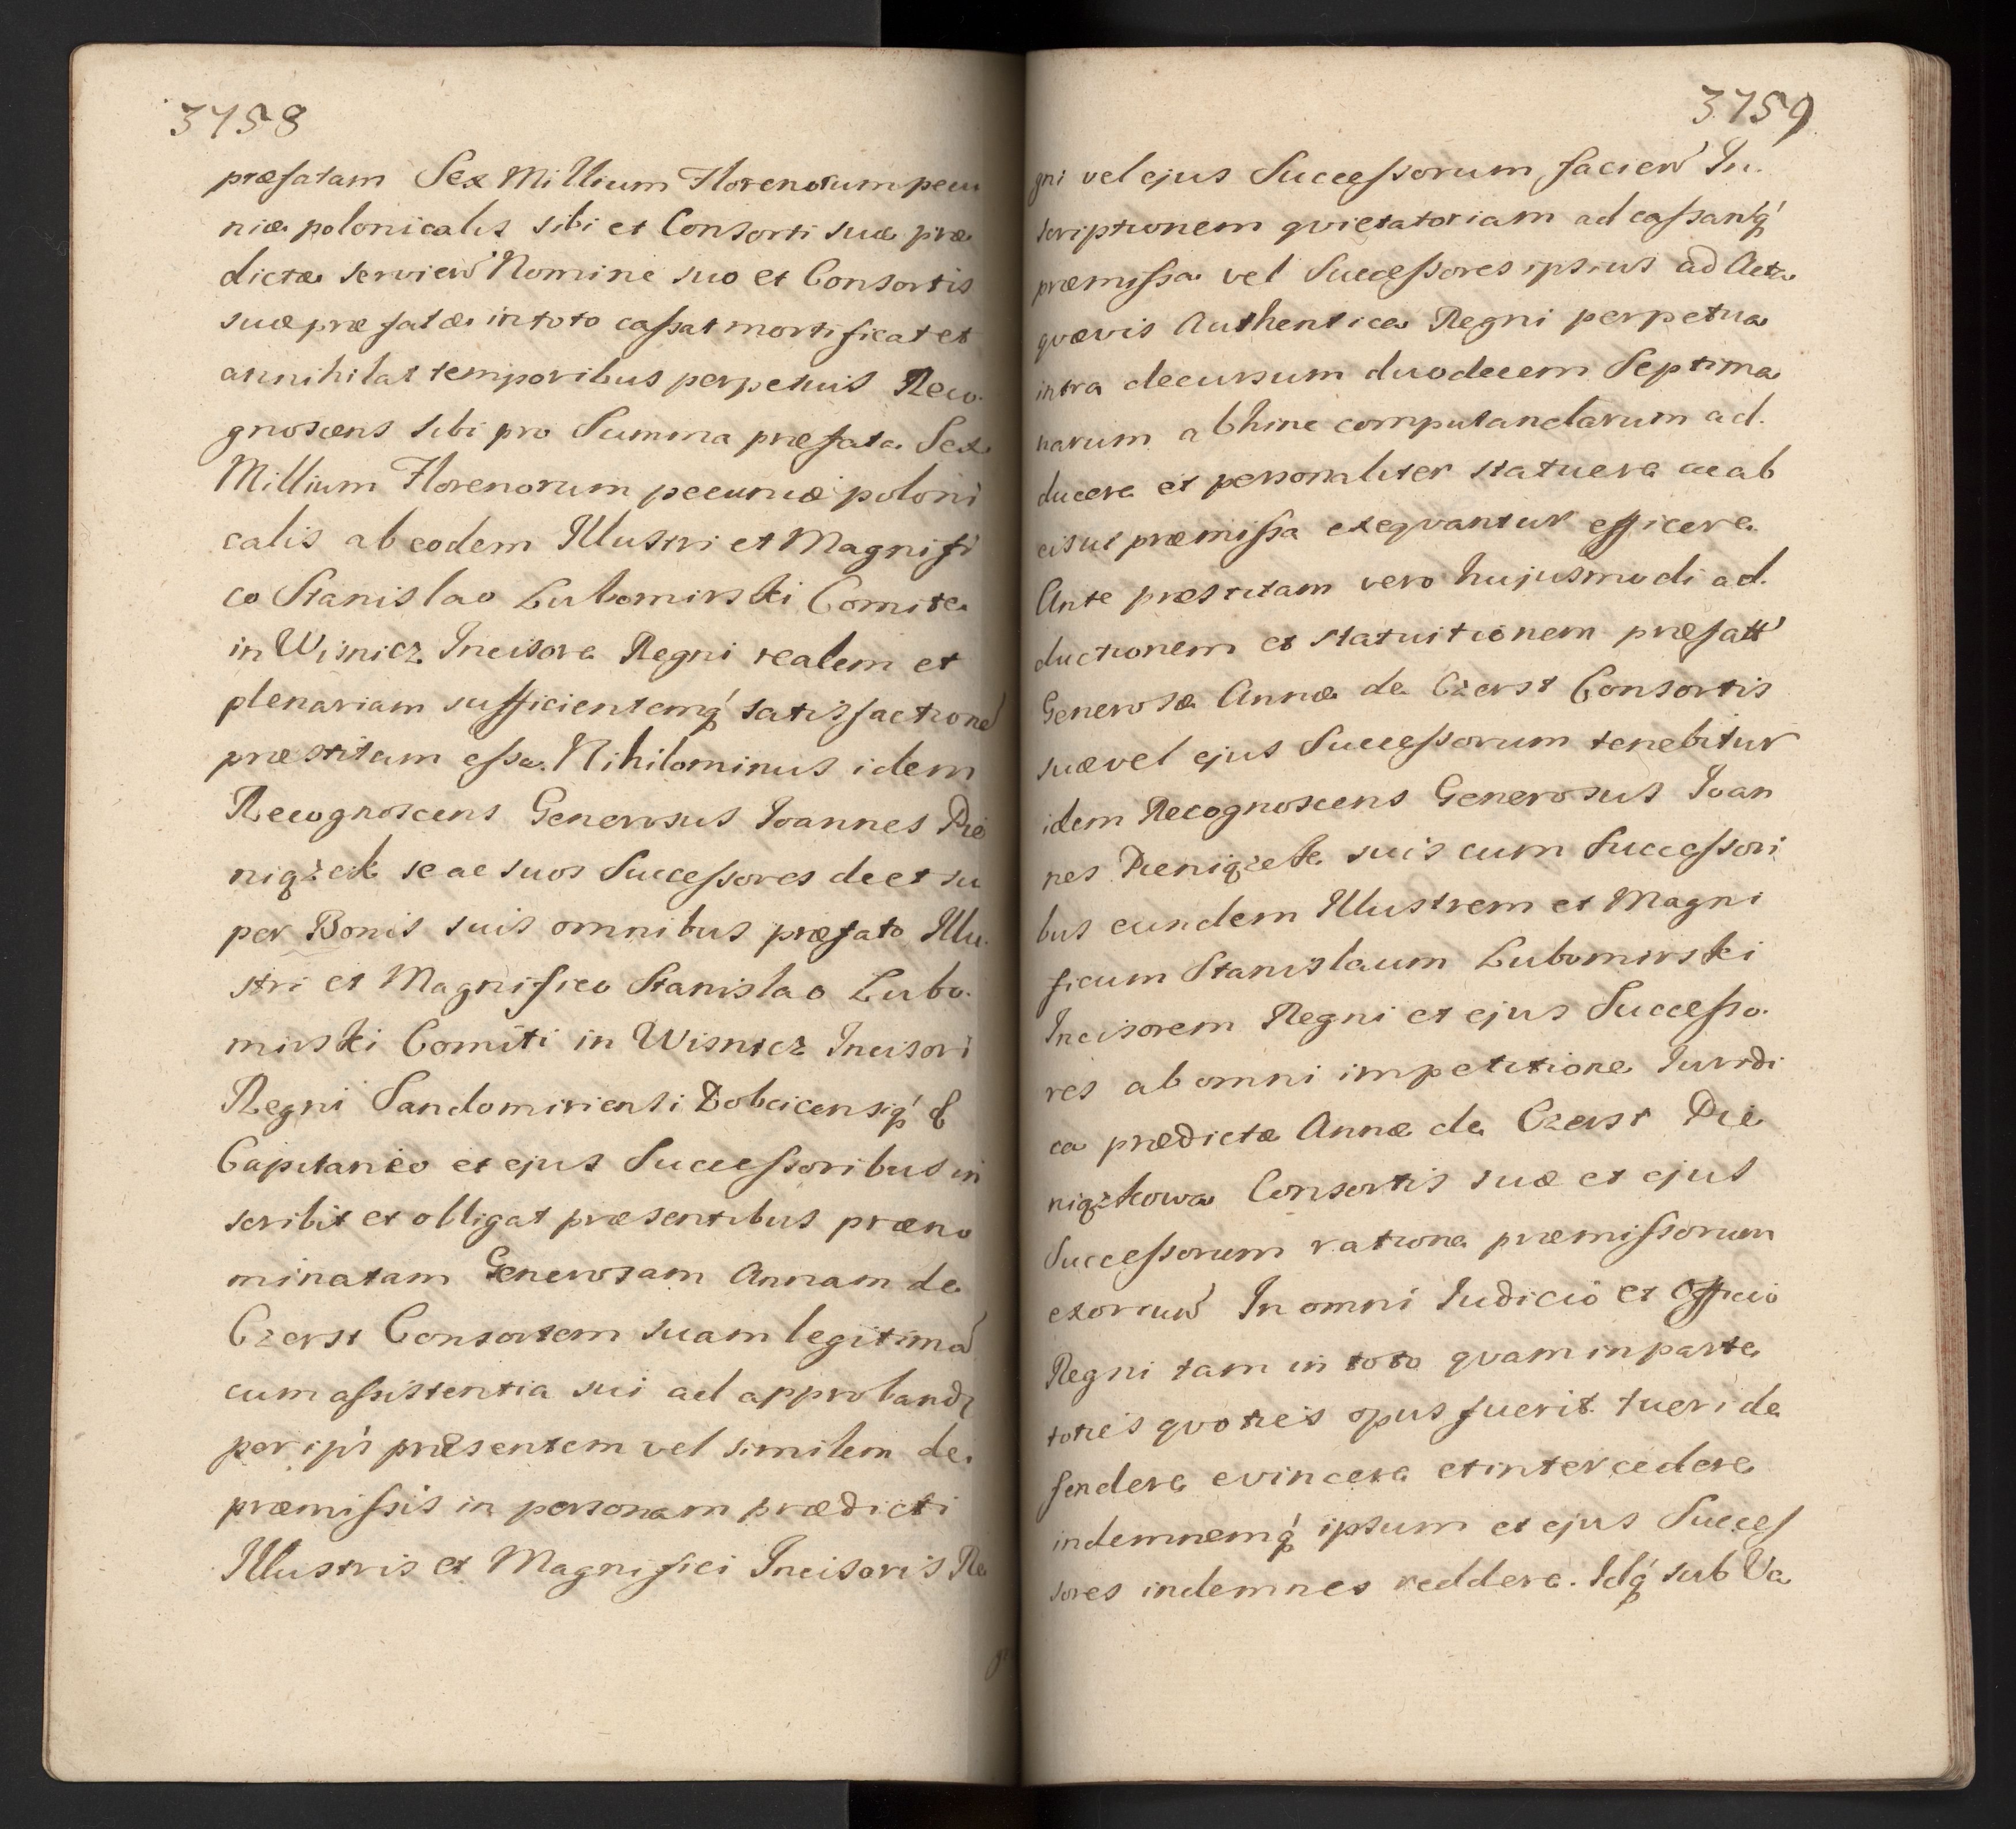 3758
præfatam Sex Millium Florenorum pecu
niæ polonicalis sibi et Consorti suæ præ
dictæ servien Nomine suo et Consortis
suæ præfatæ in toto cassat mortificat et
annihilat temporibus perpetuis Reco-
gnoscens sibi pro Summa præfata Sex
Millium Florenorum pecuniæ poloni
calis ab eodem Illustri et Magnifi
co Stanislao Lubomirski Comite
in Wisnicz Incisore Regni realem et
plenariam sufficientemq satisfactione
præstitam esse. Nihilominus idem
Recognoscens Generosus Joannes Pie
niążek se ac suos Successores de et su
per Bonis suis omnibus præfato Illu-
stri et Magnifico Stanislao Lubo-
mirski Comiti in Wisnicz Incisori
Regni Sandomiriensi Dobcicensiq &
Capitaneo et ejus Successoribus in
scribit et obligat præsentibus præno
minatam Generosam Annam de
Czerst Consortem suam legitima
cum assistentia sui ad approband
per ipsi præsentem vel similem de
præmissis in personam prædicti
Illustris et Magnifici Incisoris Re
3759
gni vel ejus Successorum facien In-
scriptionem qvietatoriam ad cassantq
præmissa vel Successores ipsius ad Acta
qvævis Authentica Regni perpetua
intra decursum duodecem Septima
narum abhinc computandarum ad-
ducere et personaliter statuere ac ab
eis ut præmissa exeqvantur efficere
Ante præstitam vero hujusmodi ad-
ductionem et statuitionem præfatt
Generosæ Annæ de Czerst Consortis
suæ vel ejus Successorum tenebitur
idem Recognoscens Generosus Joan
nes Pieniążek suis cum Successori
bus eundem Illustrem et Magni
ficum Stanislaum Lubomirski
Incisorem Regni et ejus Successo-
res ab omni impetitione Juridi
ca prædictæ Annæ de Czerst Pie
niążkowa Consortis suæ et ejus
Successorum ratione præmissorum
exoriun In omni Judicio et Officio
Regni tam in toto qvam in parte
toties qvoties opus fuerit tueri de
fendere evincere et intercedere
indemnemq ipsum et ejus Succes
sores indemnes reddere. Idq sub Va